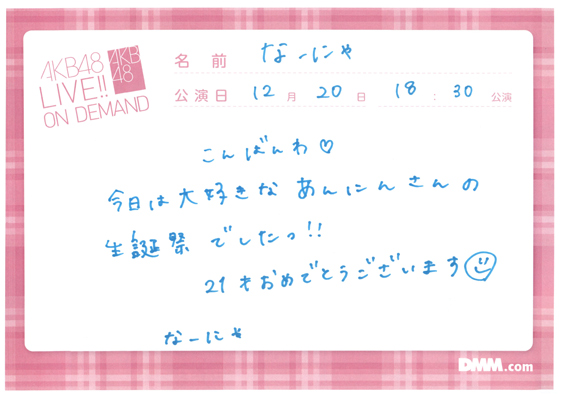 AKB48
LIVE!!
ON DEMAND
AKB
48
名前 なーにゃ
公演日 12月 20日 18:30 公演
こんばんわ♡
今日は大好きなあんにんさんの
生誕祭でしたっ!!
21才おめでとうございます☺
なーにゃ
DMM.com